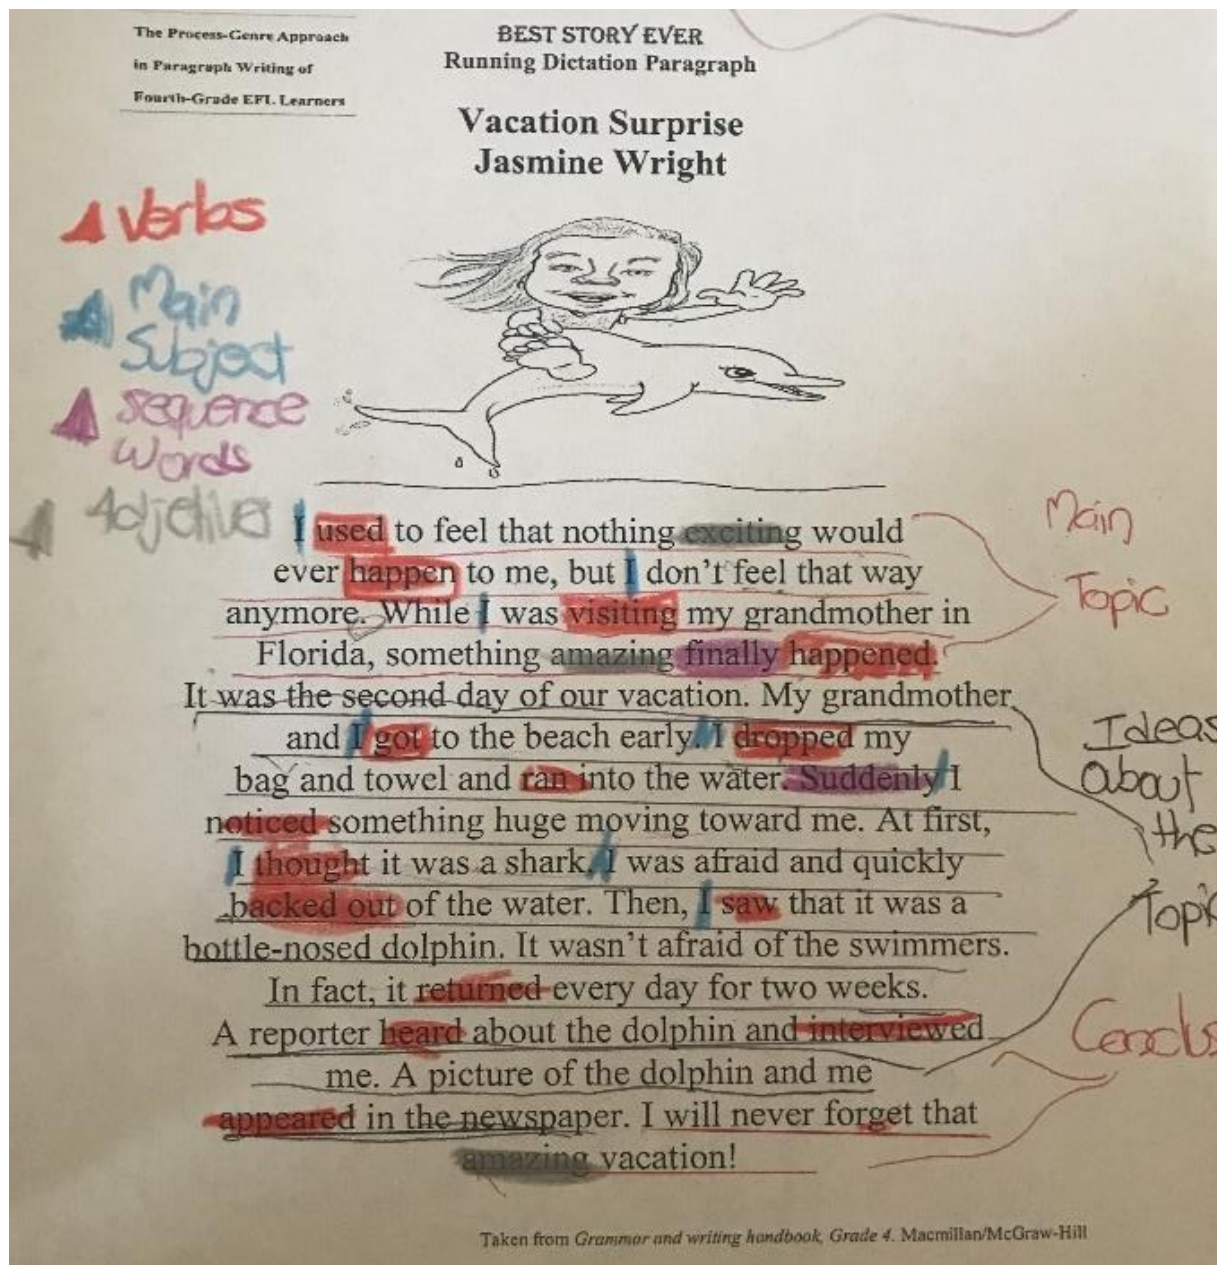 The Process-Genre Approach
in Paragraph Writing of
Fourth-Grade EFL Learners
BEST STORY EVER
Running Dictation Paragraph
Vacation Surprise
Jasmine Wright
Verbs
Main
Subject
Sequence
Words
I used to feel that nothing exciting would
ever happen to me, but I don't feel that way
anymore. While I was visiting my grandmother in
Florida, something amazing finally happened.
It was the second day of our vacation. My grandmother
and I got to the beach early. I dropped my
bag and towel and ran into the water. Suddenly I
noticed something huge moving toward me. At first,
I thought it was a shark. I was afraid and quickly
backed out of the water. Then, I saw that it was a
bottle-nosed dolphin. It wasn't afraid of the swimmers.
In fact, it returned every day for two weeks.
A reporter heard about the dolphin and interviewed
me. A picture of the dolphin and me
appeared in the newspaper. I will never forget that
amazing vacation!
Main
Topic
Ideas
about
the
Topic
Taken from Grammar and writing handbook, Grade 4. Macmillan/McGraw-Hill